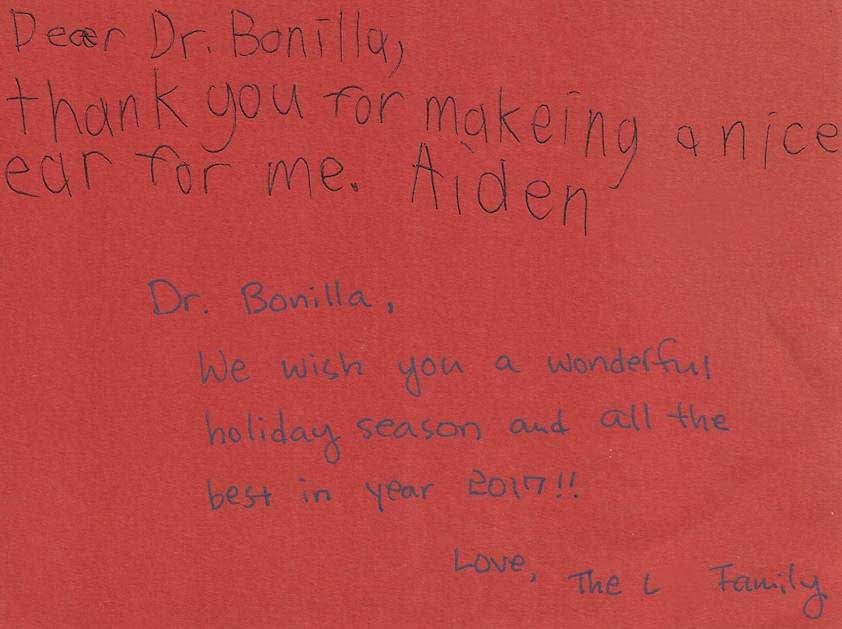 Dear Dr. Bonilla,
thank you for makeing a nice
ear for me. Aiden
Dr. Bonilla,
We wish you a wonderful
holiday season and all the
best in year 2017!!
Love, The L Family